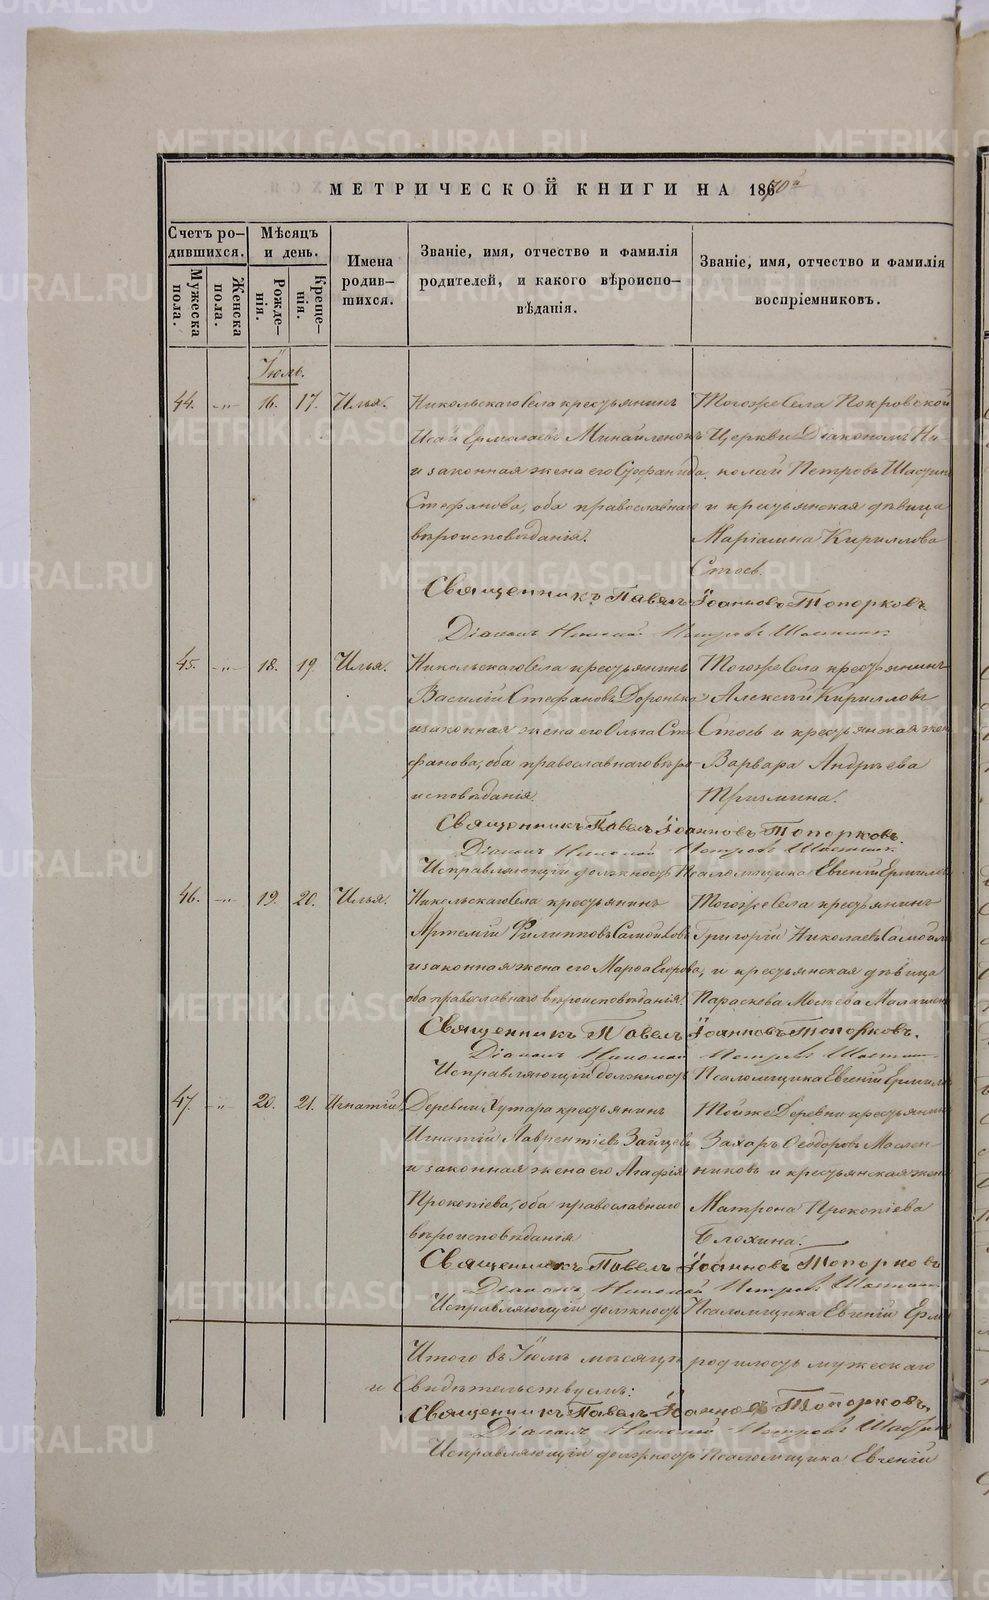 МЕТРИЧЕСКОЙ КНИГИ НА 1870й
Счетъ ро-
дившихся.
Мѣсяцъ
и день.
Имена
родив-
шихся.
Званіе, имя, отчество и фамилія
родителей, и какого вѣроиспо-
вѣданія.
Званіе, имя, отчество и фамилія
воспріемниковъ.
Мужеска
пола.
Женска
пола.
Рожде-
нія.
Креще-
нія.
Іюль.
44. -„- 16. 17. Илья.
Никольскаго села крестьянинъ
Исай Ермолаевъ Михайленокъ
и законная жена его Стефанида
Стефанова, оба православнаго
вѣроисповѣданія.
Тогоже села Покровской
Церкви Діаконъ Ни-
колай Петровъ
и крестьянская дѣвица
Маріамна Кириллова
Стоев.
Священникъ Павелъ Іоанновъ Топорковъ
Діаконъ Николай Петровъ
45. -„- 18. 19. Илья.
Никольскаго села крестьянинъ
Василій Стефановъ Доронько
и законная жена его Ольга Сте-
фанова, оба православнаго вѣро-
исповѣданія.
Тогоже села крестьянинъ
Алексѣй Кирилловъ
Стоевъ и крестьянская жен
Варвара Андреева
Священникъ Павелъ Іоанновъ Топорковъ.
Діаконъ Николай Петровъ
Исправляющій должность Псаломщика Евгеній
46. -„- 19. 20. Илья.
Никольскаго села крестьянинъ
Артемій Филипповъ Самойловъ
и законная жена его Марѳа Егорова,
оба православнаго вѣроисповѣданія.
Тогоже села крестьянинъ
Григорій Николаевъ Самойл
и крестьянская дѣвица
Параскева
Священникъ Павелъ Іоанновъ Топорковъ.
Діаконъ Николай Петровъ
Исправляющій должность Псаломщика Евгеній
47. -„- 20. 21. Игнатій.
Деревни Хутара крестьянинъ
Игнатій Лаврентіевъ Зайцевъ
и законная жена его Агафія
Прокопіева, оба православнаго
вѣроисповѣданія
Тойже Деревни крестьянинъ
Захаръ Ѳеодоровъ Маслен-
никовъ и крестьянская жена
Матрона Прокопіева
Блохина.
Священникъ Павелъ Іоанновъ Топорковъ
Діаконъ Николай Петровъ
Исправляющій должность Псаломщика Евгеній
Итого въ Іюлѣ мѣсяцѣ родилось мужескаго
и Свидѣтельствуемъ:
Священникъ Павелъ Іоанновъ Топорковъ.
Діаконъ Николай Петровъ
Исправляющій должность Псаломщика Евгеній
METRIKI.GASO-URAL.RU